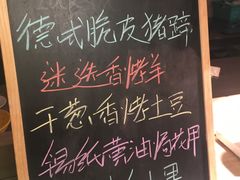 德式脆皮猪蹄
迷迭香烤羊
干葱香烤土豆
锡纸黄油焗花甲